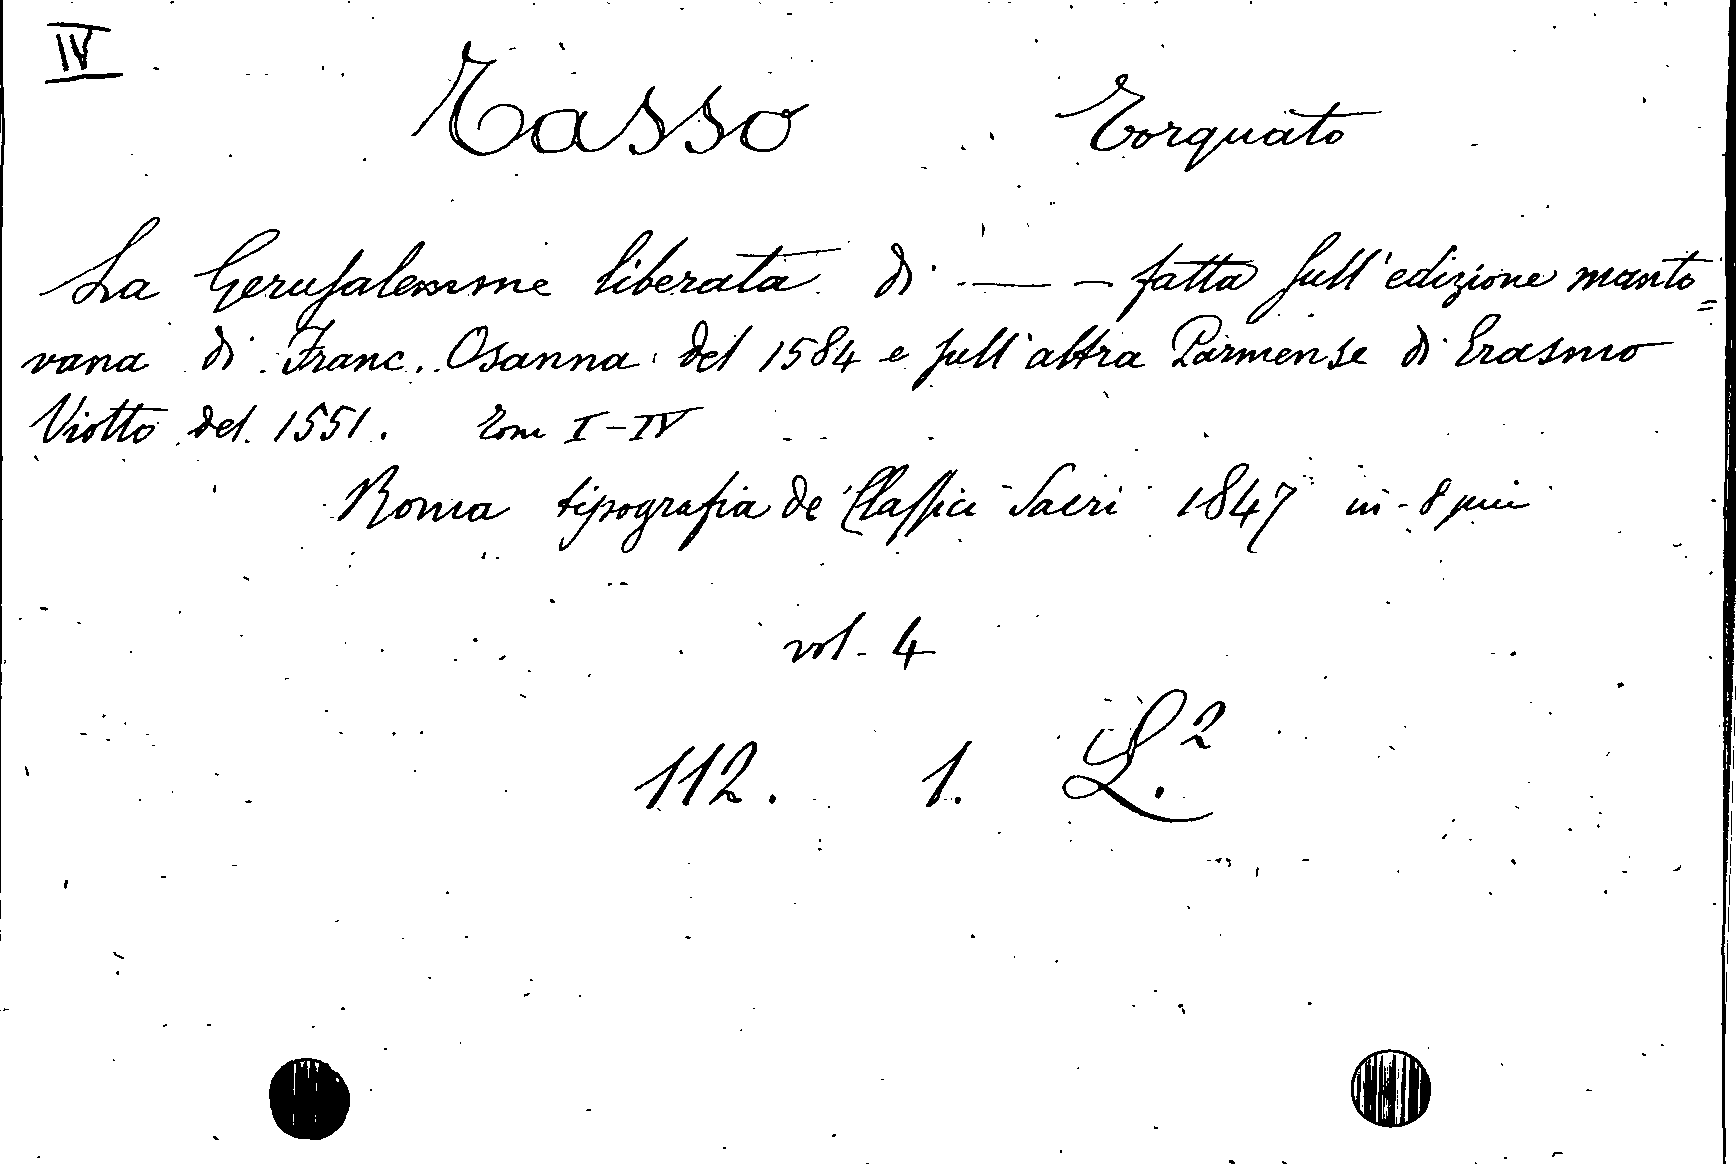 IV
Tasso Torquato
La Gerusalemme liberata di — — fatta sull'edizione manto=
vana di Franc. Osanna del 1584 e sull'altra Parmense di Erasmo
Viotto del 1551. Tom I-IV
Roma tipografia de' Classici Sacri 1847 in-8 pic
vol. 4
112. 1. L.²